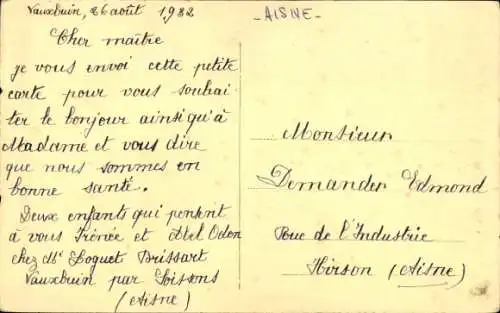 Vauxbuin, 26 août 1932
Cher maître
je vous envoi cette petite
carte pour vous souhai-
ter le bonjour ainsi qu'à
Madame et vous dire
que nous sommes en
bonne santé.
Deux enfants qui pensent
à vous Irénée et Abel Odon
chez Mr Loguet Brissart
Vauxbuin par Soissons
(Aisne)
- AISNE -
Monsieur
Demander Edmond
Rue de l'Industrie
Hirson (Aisne)